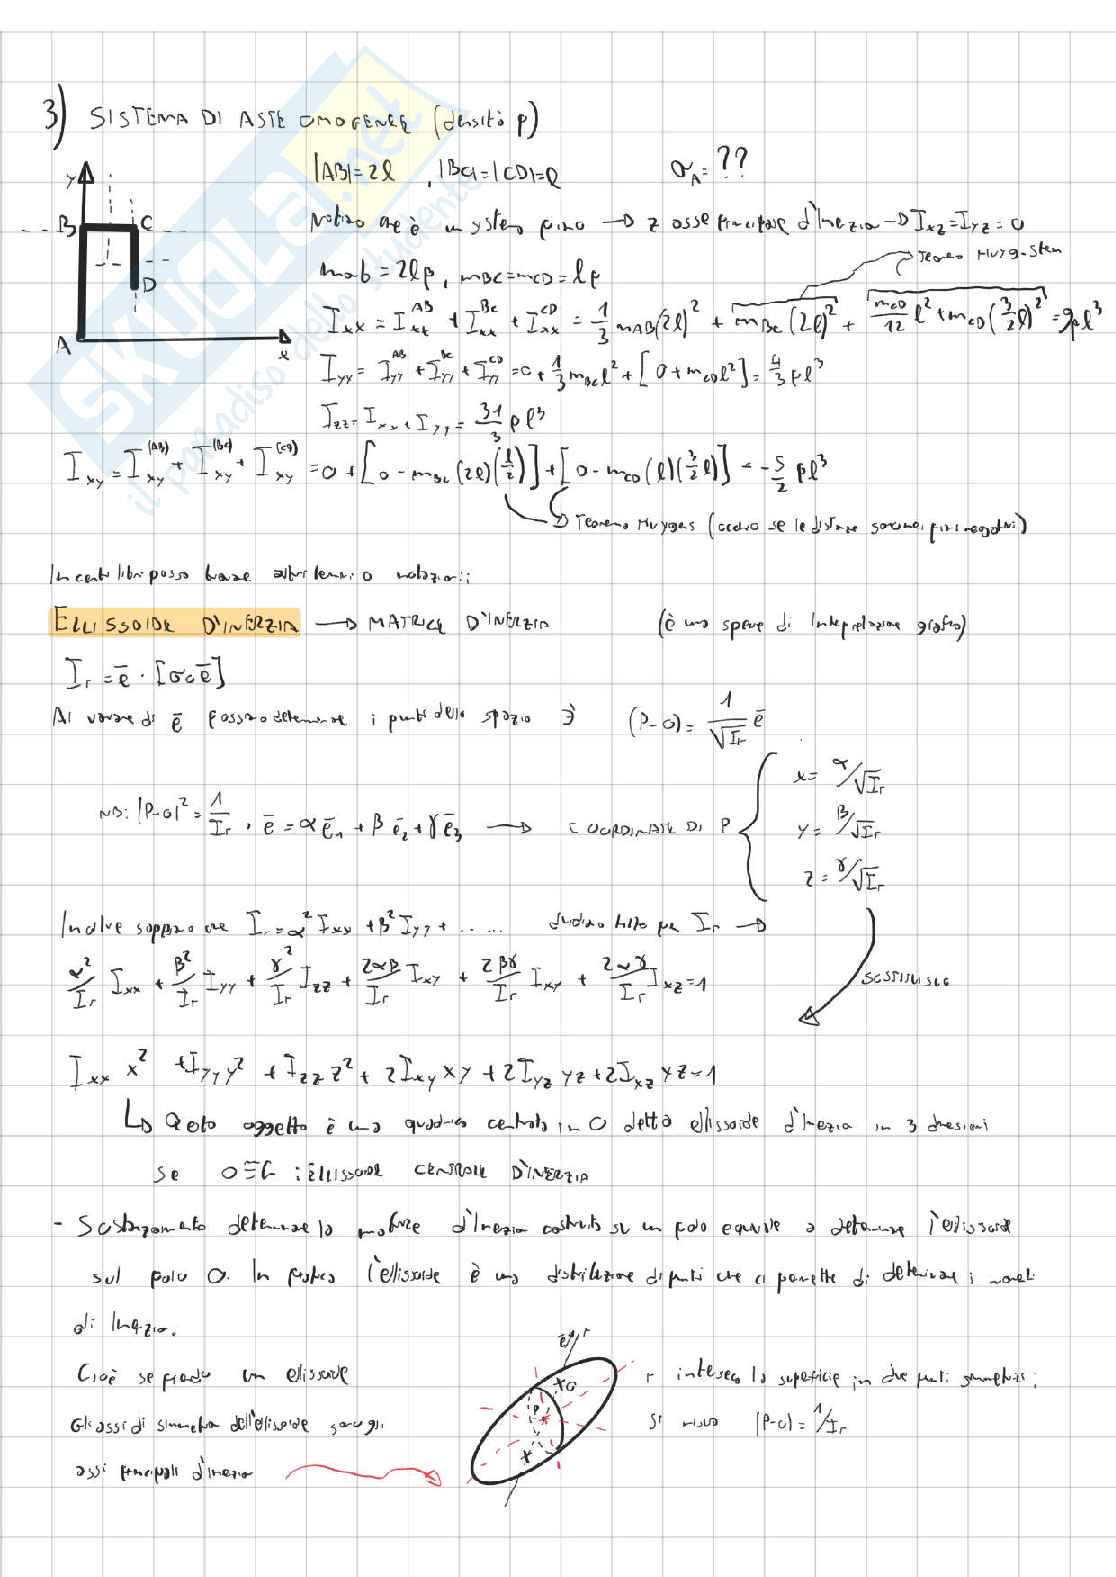 3) SISTEMA DI ASTE OMOGENEE (densità ρ)
|AB|=2l , |BC|=|CD|=l σ_A=??
y B C D A x
Notiamo che è un sistema piano → z asse principale d'inerzia → I_xz=I_yz=0
Teorema Huygens-Steiner
m_ab = 2lρ, m_BC=m_CD=lρ
I_xx = I_xx^AB + I_xx^BC + I_xx^CD = 1/3 m_AB(2l)² + m_BC(2l)² + m_CD/12 l² + m_CD(3/2 l)² = 9ρl³
I_yy = I_yy^AB + I_yy^BC + I_yy^CD = 0 + 1/3 m_BC l² + [0+m_CD l²] = 4/3 ρl³
I_zz = I_xx + I_yy = 31/3 ρl³
I_xy = I_xy^(AB) + I_xy^(BC) + I_xy^(CD) = 0 + [0 - m_BC (2l)(l/2)] + [0 - m_CD (l)(3/2 l)] = -5/2 ρl³
Teorema Huygens (occhio se le distanze sono
In certi libri posso trovare altri termini o notazioni:
ELLISSOIDE D'INERZIA → MATRICE D'INERZIA (è una specie di interpretazione grafica)
I_r = ē · [σ_O ē]
Al variare di ē possiamo determinare i punti dello spazio ∃ (P-O) = 1/√I_r ē
NB: |P-O|² = 1/I_r , ē = αē₁ + βē₂ + γē₃ → COORDINATE DI P
x = α/√I_r
y = β/√I_r
z = γ/√I_r
Inoltre sappiamo che I_r = α² I_xx + β² I_yy + ...... dividiamo tutto per I_r →
α²/I_r I_xx + β²/I_r I_yy + γ²/I_r I_zz + 2αβ/I_r I_xy + 2βγ/I_r I_xy + 2αγ/I_r I_xz = 1
SOSTITUISCO
I_xx x² + I_yy y² + I_zz z² + 2I_xy xy + 2I_yz yz + 2I_xz xz = 1
↳ Questo oggetto è una quadrica centrata in O detta ellissoide d'inerzia in 3 dimensioni
Se O≡G : ELLISSOIDE CENTRALE D'INERZIA
- Sostanzialmente determinare la matrice d'inerzia costruita su un polo equivale a determinare l'ellissoide
sul polo O. In pratica l'ellissoide è una distribuzione di punti che ci permette di determinare i momenti
di inerzia.
ē r
Cioè se prendo un ellissoide r interseca la superficie in due punti simmetrici;
Gli assi di simmetria dell'ellissoide sono gli Si ricava |P-O| = 1/I_r
assi principali d'inerzia